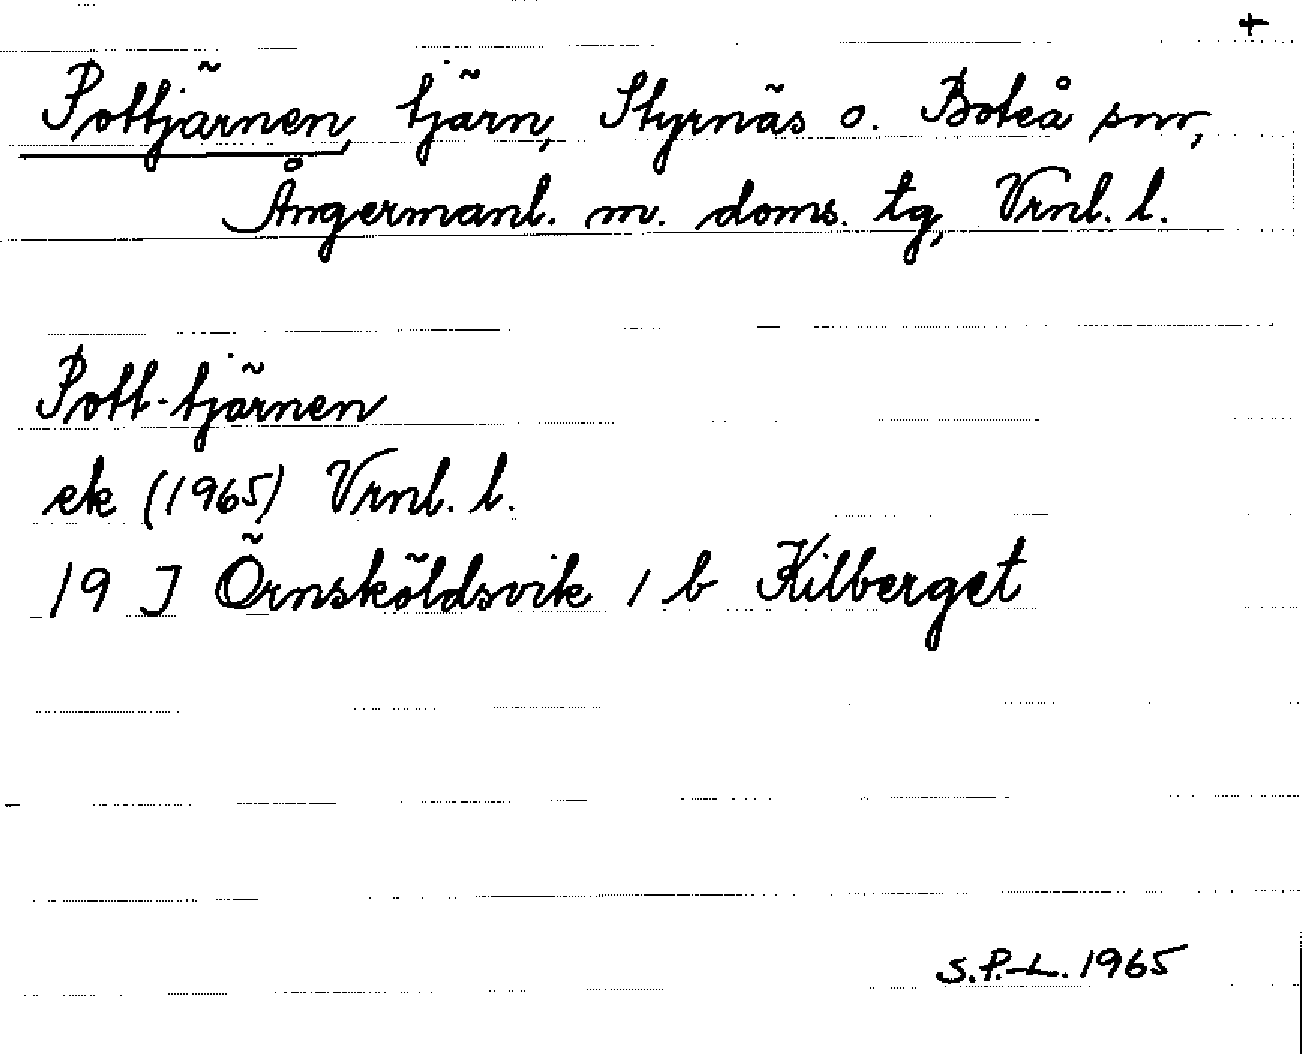 +
Pottjärnen, tjärn, Styrnäs o. Boteå snr,
Ångermanl. m. doms. tg, Vrnl. l.
Pott-tjärnen
ek (1965) Vrnl. l.
19 J Örnsköldsvik 1 b Kilberget
S.P.-L. 1965